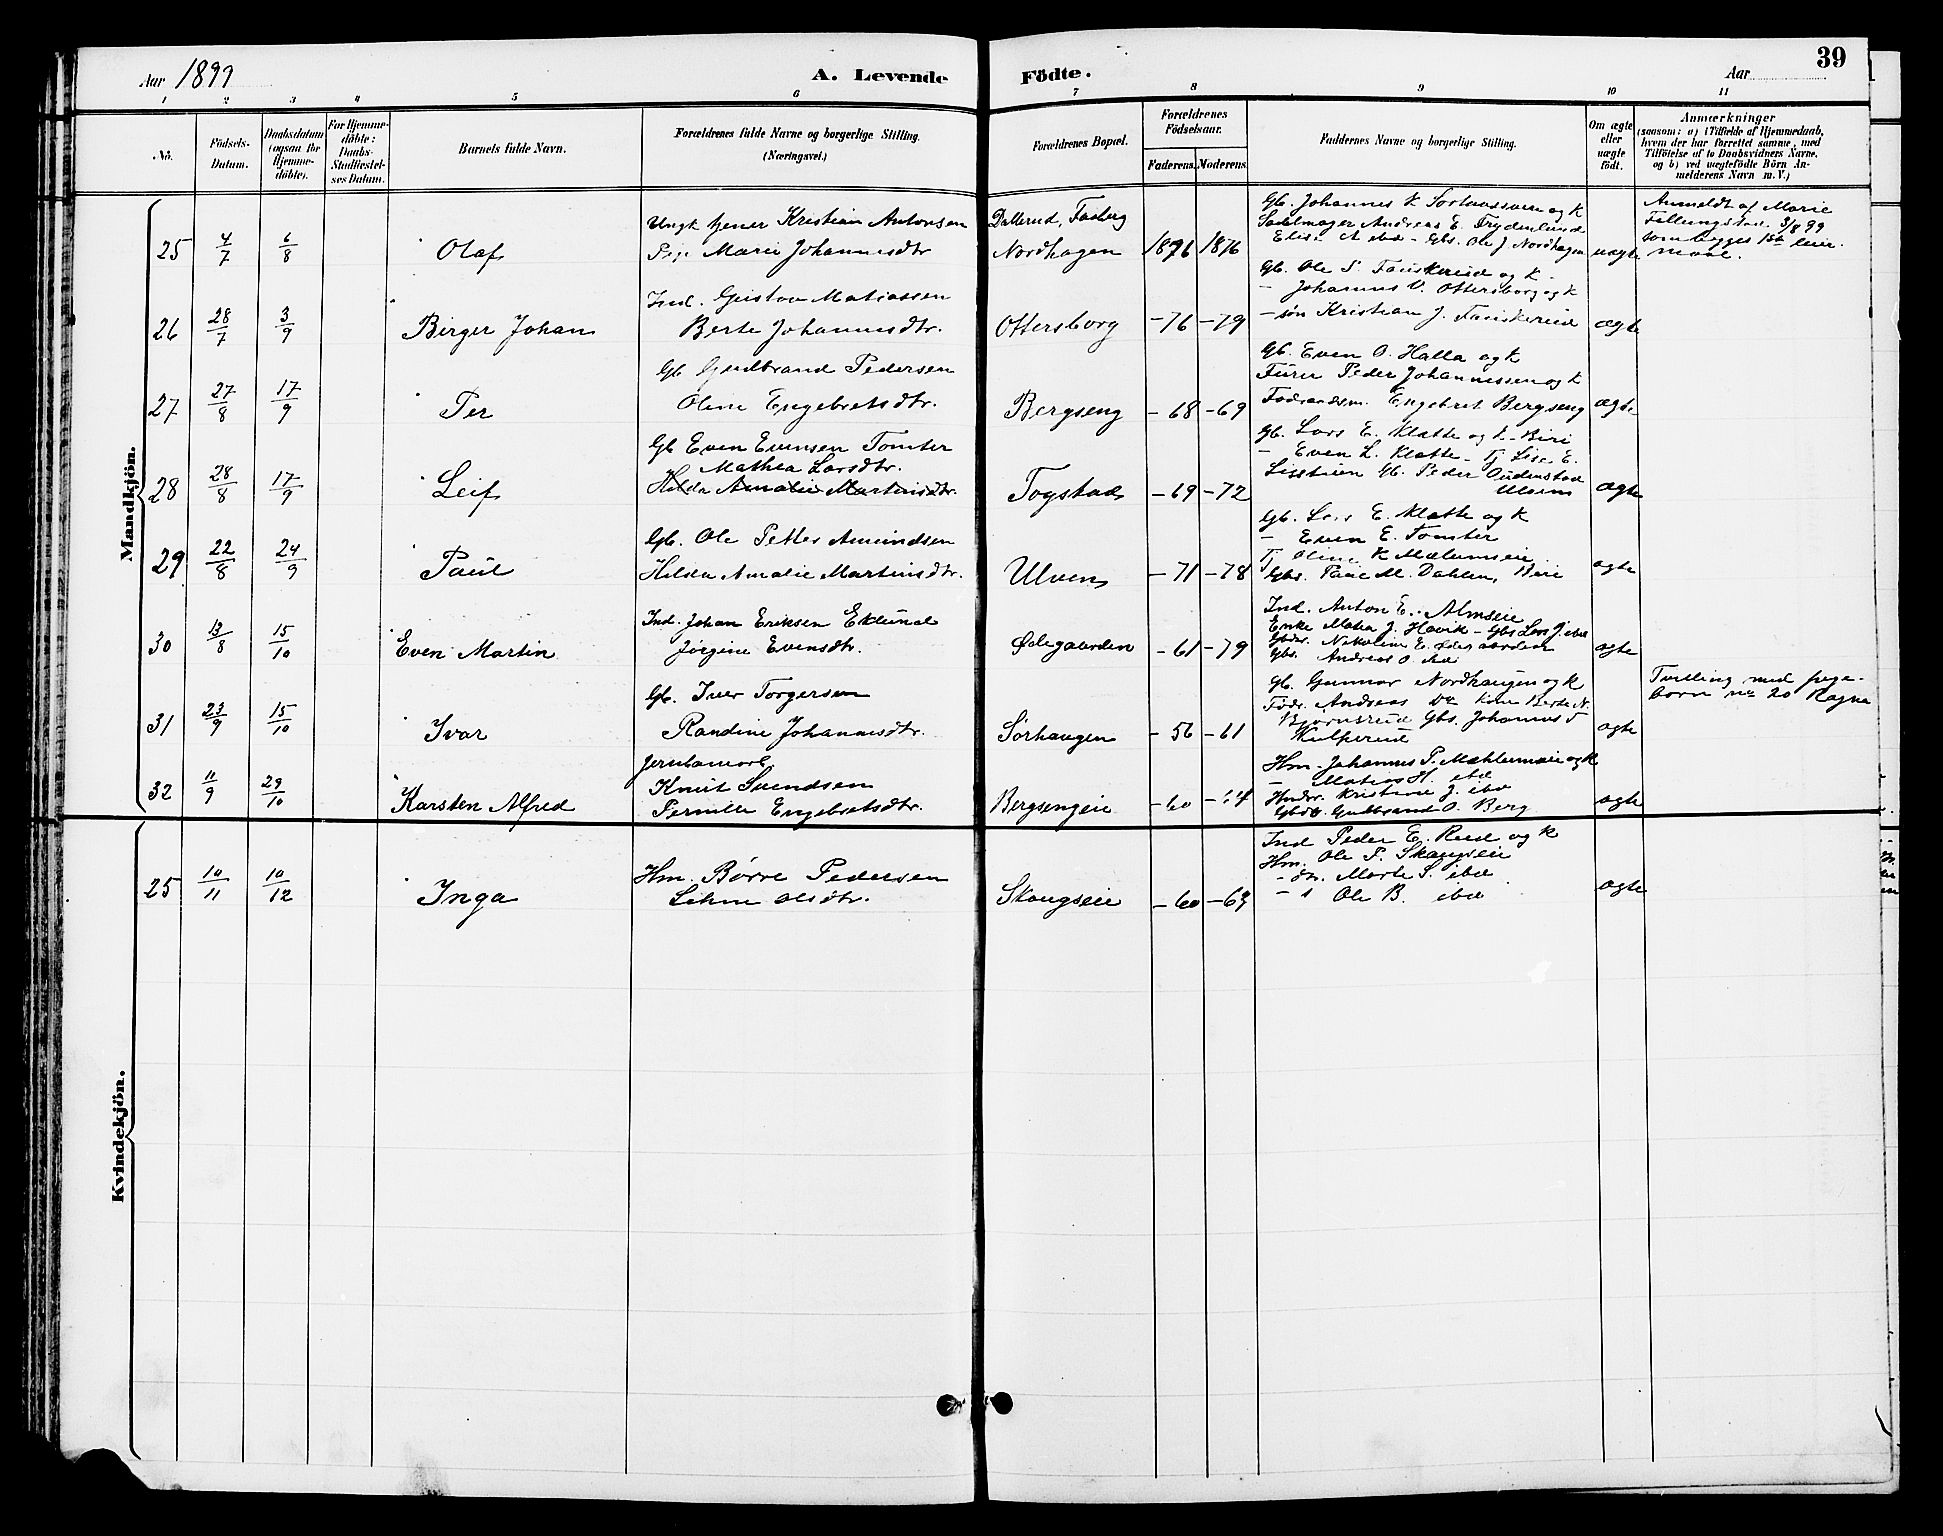 Aar 1899
A. Levende
Födte.
Aar
39
1 2 3 4 5 6 7 8 9 10 11
No.
Födsels-
Datum.
Daabsdatum
(ogsaa for
Hjemme-
döbte).
For Hjemme-
döbte:
Daabs-
Stadfæstel-
ses Datum.
Barnets fulde Navn.
Forældrenes fulde Navne og borgerlige Stilling.
(Næringsvei.)
Forældrenes Bopæl.
Forældrenes
Födselsaar.
Faderens. Moderens.
Faddernes Navne og borgerlige Stilling.
Om ægte
eller
uægte
födt.
Anmærkninger
(saasom: a) i Tilfælde af Hjemmedaab,
hvem der har forrettet samme, med
Tilföielse af to Daabsvidners Navne,
og b) ved uægtefödte Börn An-
melderens Navn m. V.)
Mandkjön.
25 4/7 6/8 Olaf
Ungk tjener Kristian Antonsen
Pige Marie Johannesdtr
Dallerud, Faaberg
Nordhagen 1876 1876
Gb. Johannes K. og K
Sadelmager Andreas E. Frydenlund
Elise A ibd - Gbs. Ole J Nordhagen
uægte
Anmeldt af Marie
Fellungstad 3/8 99
som bygges 1ste leier-
maal.
26 28/7 3/9 Birger Johan
Ind. Gustav Matiassen
Berte Johannesdtr.
Ottersborg -76 -79
Gb. Ole S. Fauskerud og K -
- Johannes O. Ottersborg og K
- søn Kristian J. Fauskerud
ægte
27 27/8 17/9 Per
Gb. Gudbrand Pedersen
Oline Engebretsdtr.
Bergseng -68 -69
Gb. Even O. Halla og K
Furer Peder Johannessen og K
Föderaadsm. Engebret Bergseng
ægte
28 28/8 17/9 Leif
Gb Even Evensen Tomter
Mathea Larsdtr.
Hilda Amalie Martinsdtr.
Togstad -69 -72
Gb. Lars E. Klætte og K - Biri
- Even L. Klætte - Tj Lise E.
Gb. Peder Oudenstad
Ulven
ægte
29 22/8 24/9 Paul
Gb. Ole Petter Amundsen
Hilda Amalie Martinsdtr.
Ulven -71 -78
Gb. Lars E. Klætte og K
- Even E. Tomter
Tj Oline K Mælumseie
Gbs. Paul M. Dahlen, Biri
ægte
30 13/8 15/10 Even Martin
Ind. Johan Eriksen Eklund
Jørgine Evensdtr.
Ødegaarden -61 -79
Ind. Anton E. Almseie
Enke Matea J. Høvik - Gbs Lars J ibd
Gbdtr. Nikoline E. Ødegaarden
Gbs. Andreas O ibd
ægte
31 23/9 15/10 Ivar
Gb. Iver Torgersen
Randine Johannesdtr.
Sørhaugen -56 -61
Gb. Gunnar Nordhaugen og K
Födr. Andreas Do Kone Berte N.
Bjørnsrud Gbs. Johannes T
Kulperud
ægte
Tvilling med pige-
barn no 20 Ragna
32 11/9 29/10 Karsten Alfred
Jernbanearb.
Knut Svendsen
Pernille Engebretsdtr.
Bergsengeie -60 -64
Hm. Johannes P. Mæhlumseie og K
- Matias H. ibd
Hmdtr. Kristine J. ibd
Gbds. Gudbrand O. Berg
ægte
Kvindekjön.
25 10/11 10/12 Inga
Hm. Børre Pedersen
Olsdtr.
Skougseie -60 -63
Ind Peder E. Rud og K
Hm. Ole P. Skougseie
- dtr. Marte S. ibd
- s Ole B. ibd
ægte